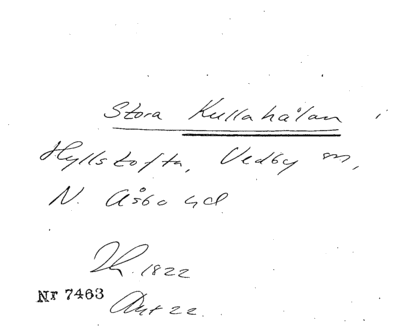 Stora Kullahålan i
Hyllstofta, Vedby sn,
N. Åsbo hd
Lh. 1822
Nr 7463
Akt 22.